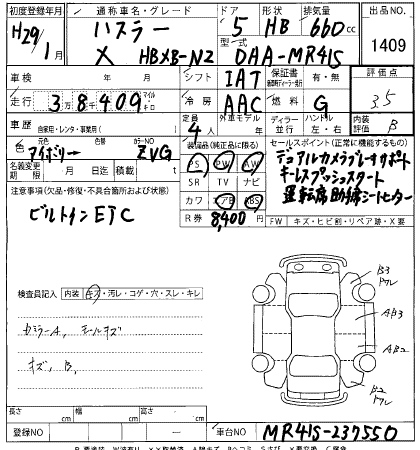 初度登録年月 通称車名・グレード ドア 形状 排気量 出品NO
H29/1月 ハスラー 5 HB 660cc 1409
X HBXB-NZ 型式 DAA-MR41S
車検 年 月 日 シフト IAT 保証書 有・無 評価点
走行 38409 マイル キロ 冷房 AAC 燃料 G 3.5
車歴 自家用・レンタ・事業用( ) 定員 4人 外車モデル 年 ディーラー 並行 ハンドル 左・右 内装 B
色 元色 アイボリー 色替 カラーNO ZVG 装備品(純正品に限る) セールスポイント(正常に機能するもの)
PS PW AW デュアルカメラブレーキサポート
名義変更期限 月 日 積載 t SR TV ナビ キーレスプッシュスタート
注意事項(欠品・修復・不具合箇所および状態) カワ エアB ABS 運転席助手席シートヒーター
ビルトインETC R券 8,400円 FW キズ・ヒビ割・リペア跡・X要
検査員記入 内装 キズ・汚レ・コゲ・穴・スレ・キレ
B3 ドアレ
Aβ3
Aβ2
B2 ドアレ
キズ、B、
長さ cm 幅 cm 高さ cm
登録NO ― 車台NO MR41S-237550